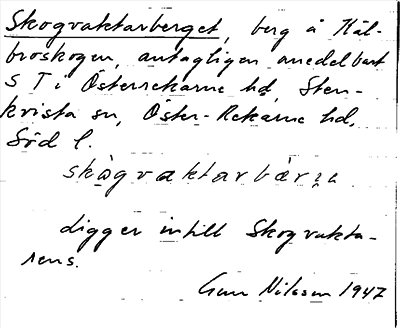 Skogvaktarberget, berg å Häl-
broskogen, antagligen omedelbart
S T i Österrekarne hd, Sten-
kvista sn, Öster-Rekarne hd,
Söd l.
skògvaktarbær
digger intill Skogvakta-
rens.
Gun Nilsson 1947